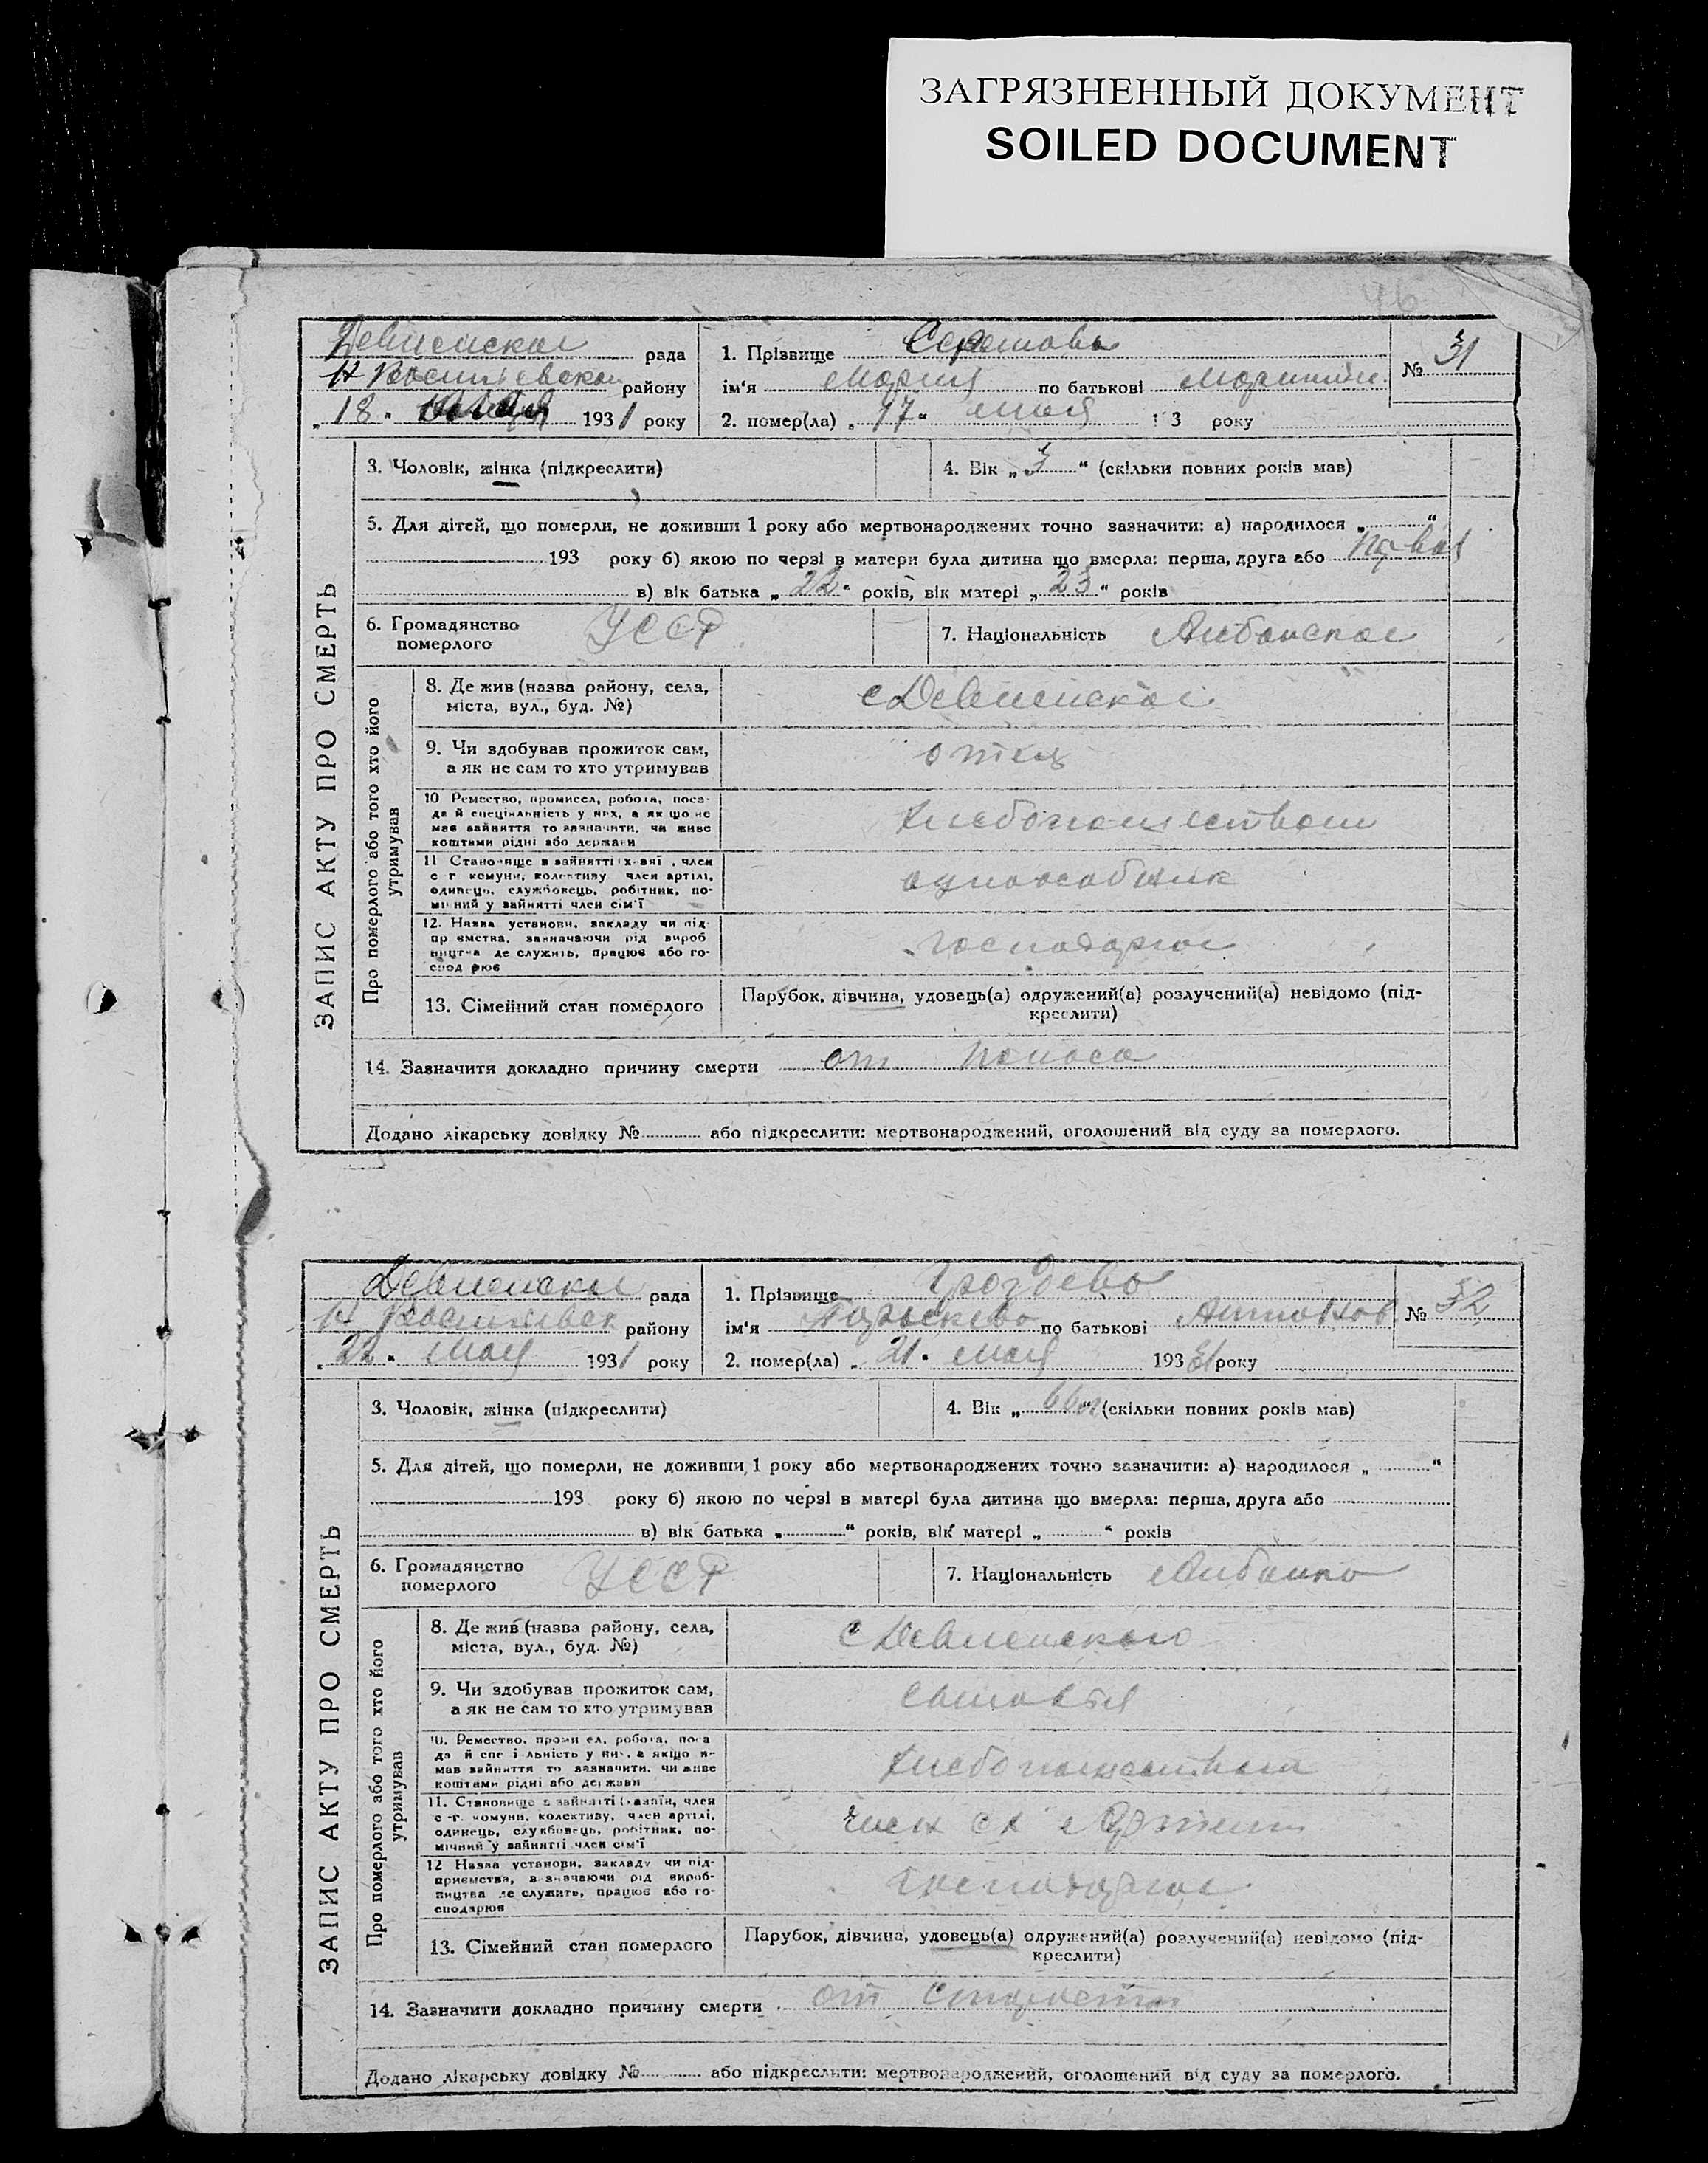 ЗАГРЯЗНЕННЫЙ ДОКУМЕНТ
SOILED DOCUMENT
46
Девненская рада
Н Васильевская району
„18“ мая 1931 року
1. Прізвище
ім'я Мария по батькові
2. помер(ла) „17“ мая 3 року
№ 31
ЗАПИС АКТУ ПРО СМЕРТЬ
3. Чоловік, жінка (підкреслити)
4. Вік „3“ (скільки повних років мав)
5. Для дітей, що померли, не доживши 1 року або мертвонароджених точно зазначити: а) народилося „ “
193 року б) якою по черзі в матери була дитина що вмерла: перша, друга або
в) вік батька „22“ років, вік матері „23“ років
6. Громадянство померлого УССР
7. Національність Албанская
Про померлого або того хто його утримував
8. Де жив (назва району, села,
міста, вул., буд. №)
с Девненское
9. Чи здобував прожиток сам,
а як не сам то хто утримував
отец
10 Ремество, промисел, робота, поса-
да й спеціяльність у них, а як що не
мав зайняття то зазначити, чи живе
коштами рідні або держави
Хлебопашеством
11 Становище в зайнятті член
с г комуни, колективу член артілі,
одинець, службовець, робітник, по-
мічний у зайнятті член сім'ї
единоособник
12. Назва установи, закладу чи під-
приємства, зазначаючи рід вироб
ництва де служить, працює або го-
сподарює
13. Сімейний стан померлого
Парубок, дівчина, удовець(а) одружений(а) розлучений(а) невідомо (під-
креслити)
14. Зазначитя докладно причину смерти от поноса
Додано лікарську довідку № або підкреслити: мертвонароджений, оголошений від суду за померлого.
Девненская рада
Н Васильевск району
„22“ мая 1931 року
1. Прізвище Гроздева
ім'я Параскева по батькові Антонов.
2. помер(ла) „21“ мая 1931 року
№ 32
ЗАПИС АКТУ ПРО СМЕРТЬ
3. Чоловік, жінка (підкреслити)
4. Вік „66“ (скільки повних років мав)
5. Для дітей, що померли, не доживши 1 року або мертвонароджених точно зазначити: а) народилося „ “
193 року б) якою по черзі в матері була дитина що вмерла: перша, друга або
в) вік батька „ “ років, вік матері „ “ років
6. Громадянство померлого УССР
7. Національність Албанка
Про померлого або того хто його утримував
8. Де жив (назва району, села,
міста, вул., буд. №)
с Девненского
9. Чи здобував прожиток сам,
а як не сам то хто утримував
10. Ремество, роботa, поса
да й у них, а якщо не
мав зайняття то зазначити, чи живе
коштами рідні або держави
Хлебопашеством
11. Становище в зайнятті член
с-г. комуни, колективу, член артілі,
одинець, службовець, робітник, по-
мічний у зайнятті член сім'ї
член сх Артели
12 Назва установи, закладу чи під-
приємства, зазначаючи рід вироб-
ництва де служить, працює або го-
сподарює
13. Сімейний стан померлого
Парубок, дівчина, удовець(а) одружений(а) розлучений(а) невідомо (під-
креслити)
14. Зазначити докладно причину смерти от старости
Додано лікарську довідку № або підкреслити: мертвонароджений, оголошений від суду за померлого.